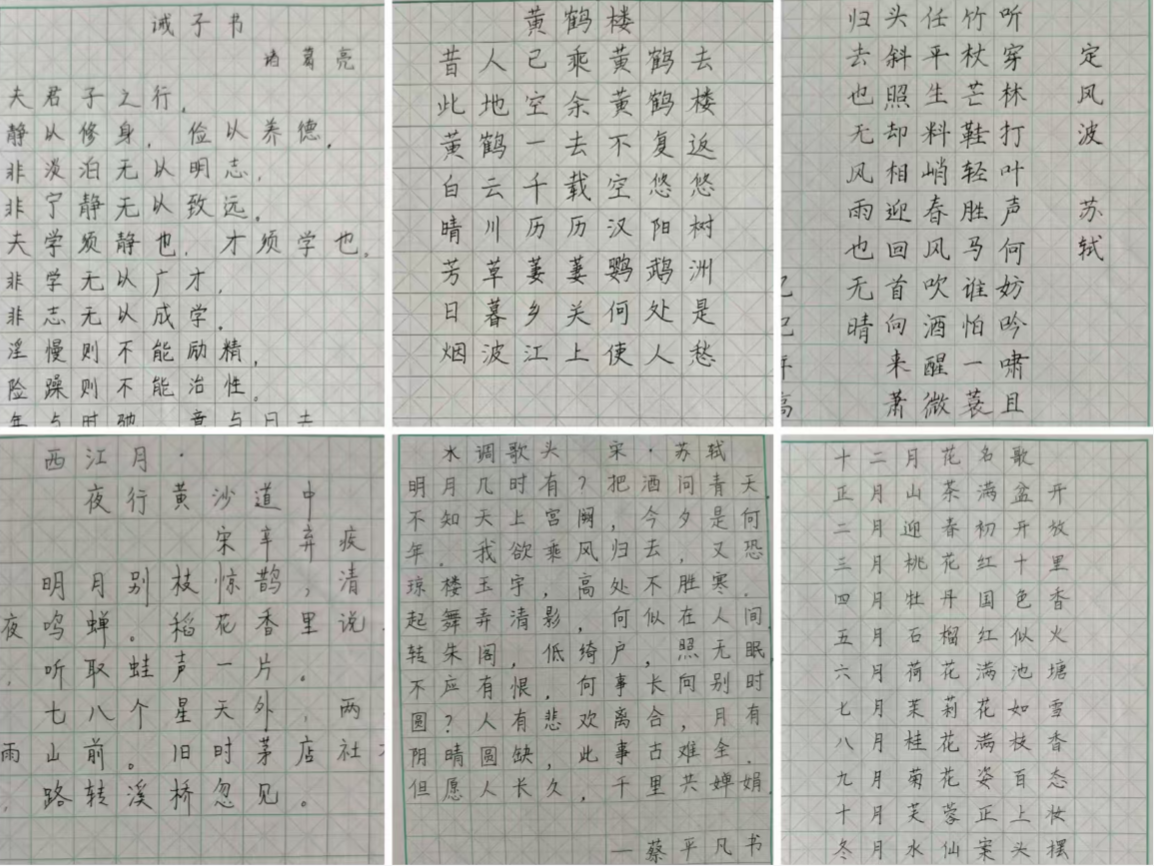 诫子书
诸葛亮
夫君子之行，
静以修身，俭以养德，
非淡泊无以明志，
非宁静无以致远。
夫学须静也，才须学也，
非学无以广才，
非志无以成学。
淫慢则不能励精，
险躁则不能治性。
年与时驰 意与日去
黄鹤楼
昔人已乘黄鹤去
此地空余黄鹤楼
黄鹤一去不复返
白云千载空悠悠
晴川历历汉阳树
芳草萋萋鹦鹉洲
日暮乡关何处是
烟波江上使人愁
定风波 苏轼
听穿林打叶声何妨吟啸且
竹杖芒鞋轻胜马谁怕一蓑
任平生料峭春风吹酒醒微
头斜照却相迎回首向来萧
归去也无风雨也无晴
西江月·
夜行黄沙道中
宋辛弃疾
明月别枝惊鹊，清
夜鸣蝉。稻花香里说
，听取蛙声一片。
七八个星天外，两
雨山前。旧时茅店社
，路转溪桥忽见。
水调歌头 宋·苏轼
明月几时有？把酒问青天，
不知天上宫阙，今夕是何
年。我欲乘风归去，又恐
琼楼玉宇，高处不胜寒．
起舞弄清影，何似在人间，
转朱阁，低绮户，照无眠，
不应有恨，何事长向别时
圆？人有悲欢离合，月有
阴晴圆缺，此事古难全．
但愿人长久，千里共婵娟．
—蔡平凡书
十二月花名歌
正月山茶满盆开
二月迎春初开放
三月桃花红十里
四月牡丹国色香
五月石榴红似火
六月荷花满池塘
七月茉莉花如雪
八月桂花满枝香
九月菊花姿百态
十月芙蓉正上妆
冬月水仙案头摆